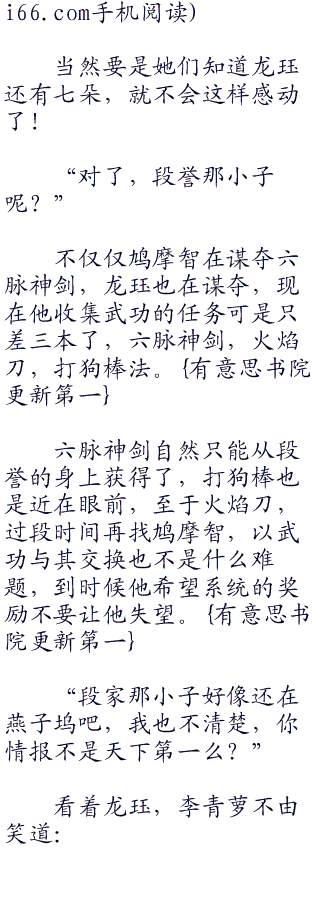 i66.com手机阅读)
当然要是她们知道龙珏
还有七朵，就不会这样感动
了！
“对了，段誉那小子
呢？”
不仅仅鸠摩智在谋夺六
脉神剑，龙珏也在谋夺，现
在他收集武功的任务可是只
差三本了，六脉神剑，火焰
刀，打狗棒法。{有意思书院
更新第一}
六脉神剑自然只能从段
誉的身上获得了，打狗棒也
是近在眼前，至于火焰刀，
过段时间再找鸠摩智，以武
功与其交换也不是什么难
题，到时候他希望系统的奖
励不要让他失望。{有意思书
院更新第一}
“段家那小子好像还在
燕子坞吧，我也不清楚，你
情报不是天下第一么？”
看着龙珏，李青萝不由
笑道：